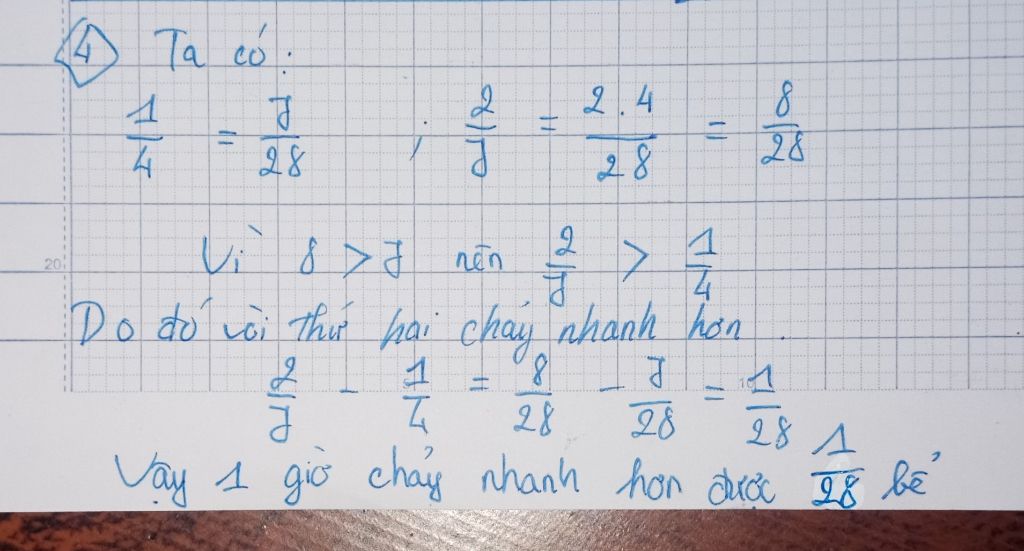 4 Ta có:
1/4 = 7/28 ; 2/7 = 2.4/28 = 8/28
20
Vì 8 > 7 nên 2/7 > 1/4
Do đó vòi thứ hai chảy nhanh hơn.
2/7 - 1/4 = 8/28 - 7/28 = 1/28
Vậy 1 giờ chảy nhanh hơn được 1/28 bể